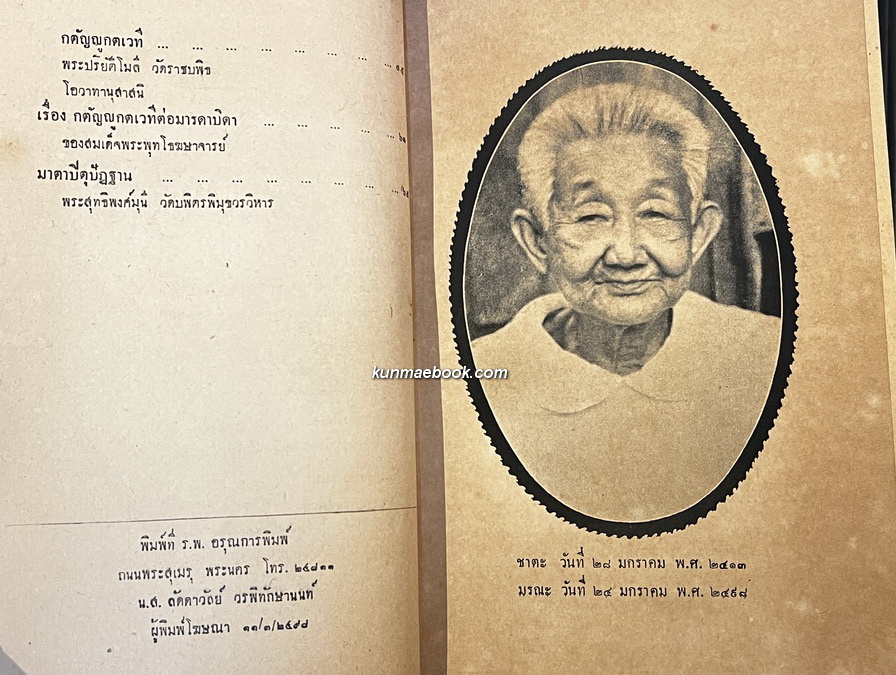 กตัญญูกตเวที ... ... ... ... ... ...
พระปริยัติโมลี วัดราชบพิธ
โอวาทานุสาสนี
เรื่อง กตัญญูกตเวทีต่อมารดาบิดา ... ... ... ...
ของสมเด็จพระพุทโฆษาจารย์
มาตาปิตุปัฏฐาน ... ... ... ... ... ... ...
พระสุทธิพงศ์มุนี วัดบพิตรพิมุขวรวิหาร
พิมพ์ที่ ร.พ. อรุณการพิมพ์
ถนนพระสุเมรุ พระนคร โทร. ๒๔๘๑๑
น.ส. ลัดดาวัลย์ วรพิทักษานนท์
ผู้พิมพ์โฆษณา ๑๑/๓/๒๔๙๘
kunmaebook.com
ชาตะ วันที่ ๒๘ มกราคม พ.ศ. ๒๔๑๓
มรณะ วันที่ ๒๔ มกราคม พ.ศ. ๒๔๙๘